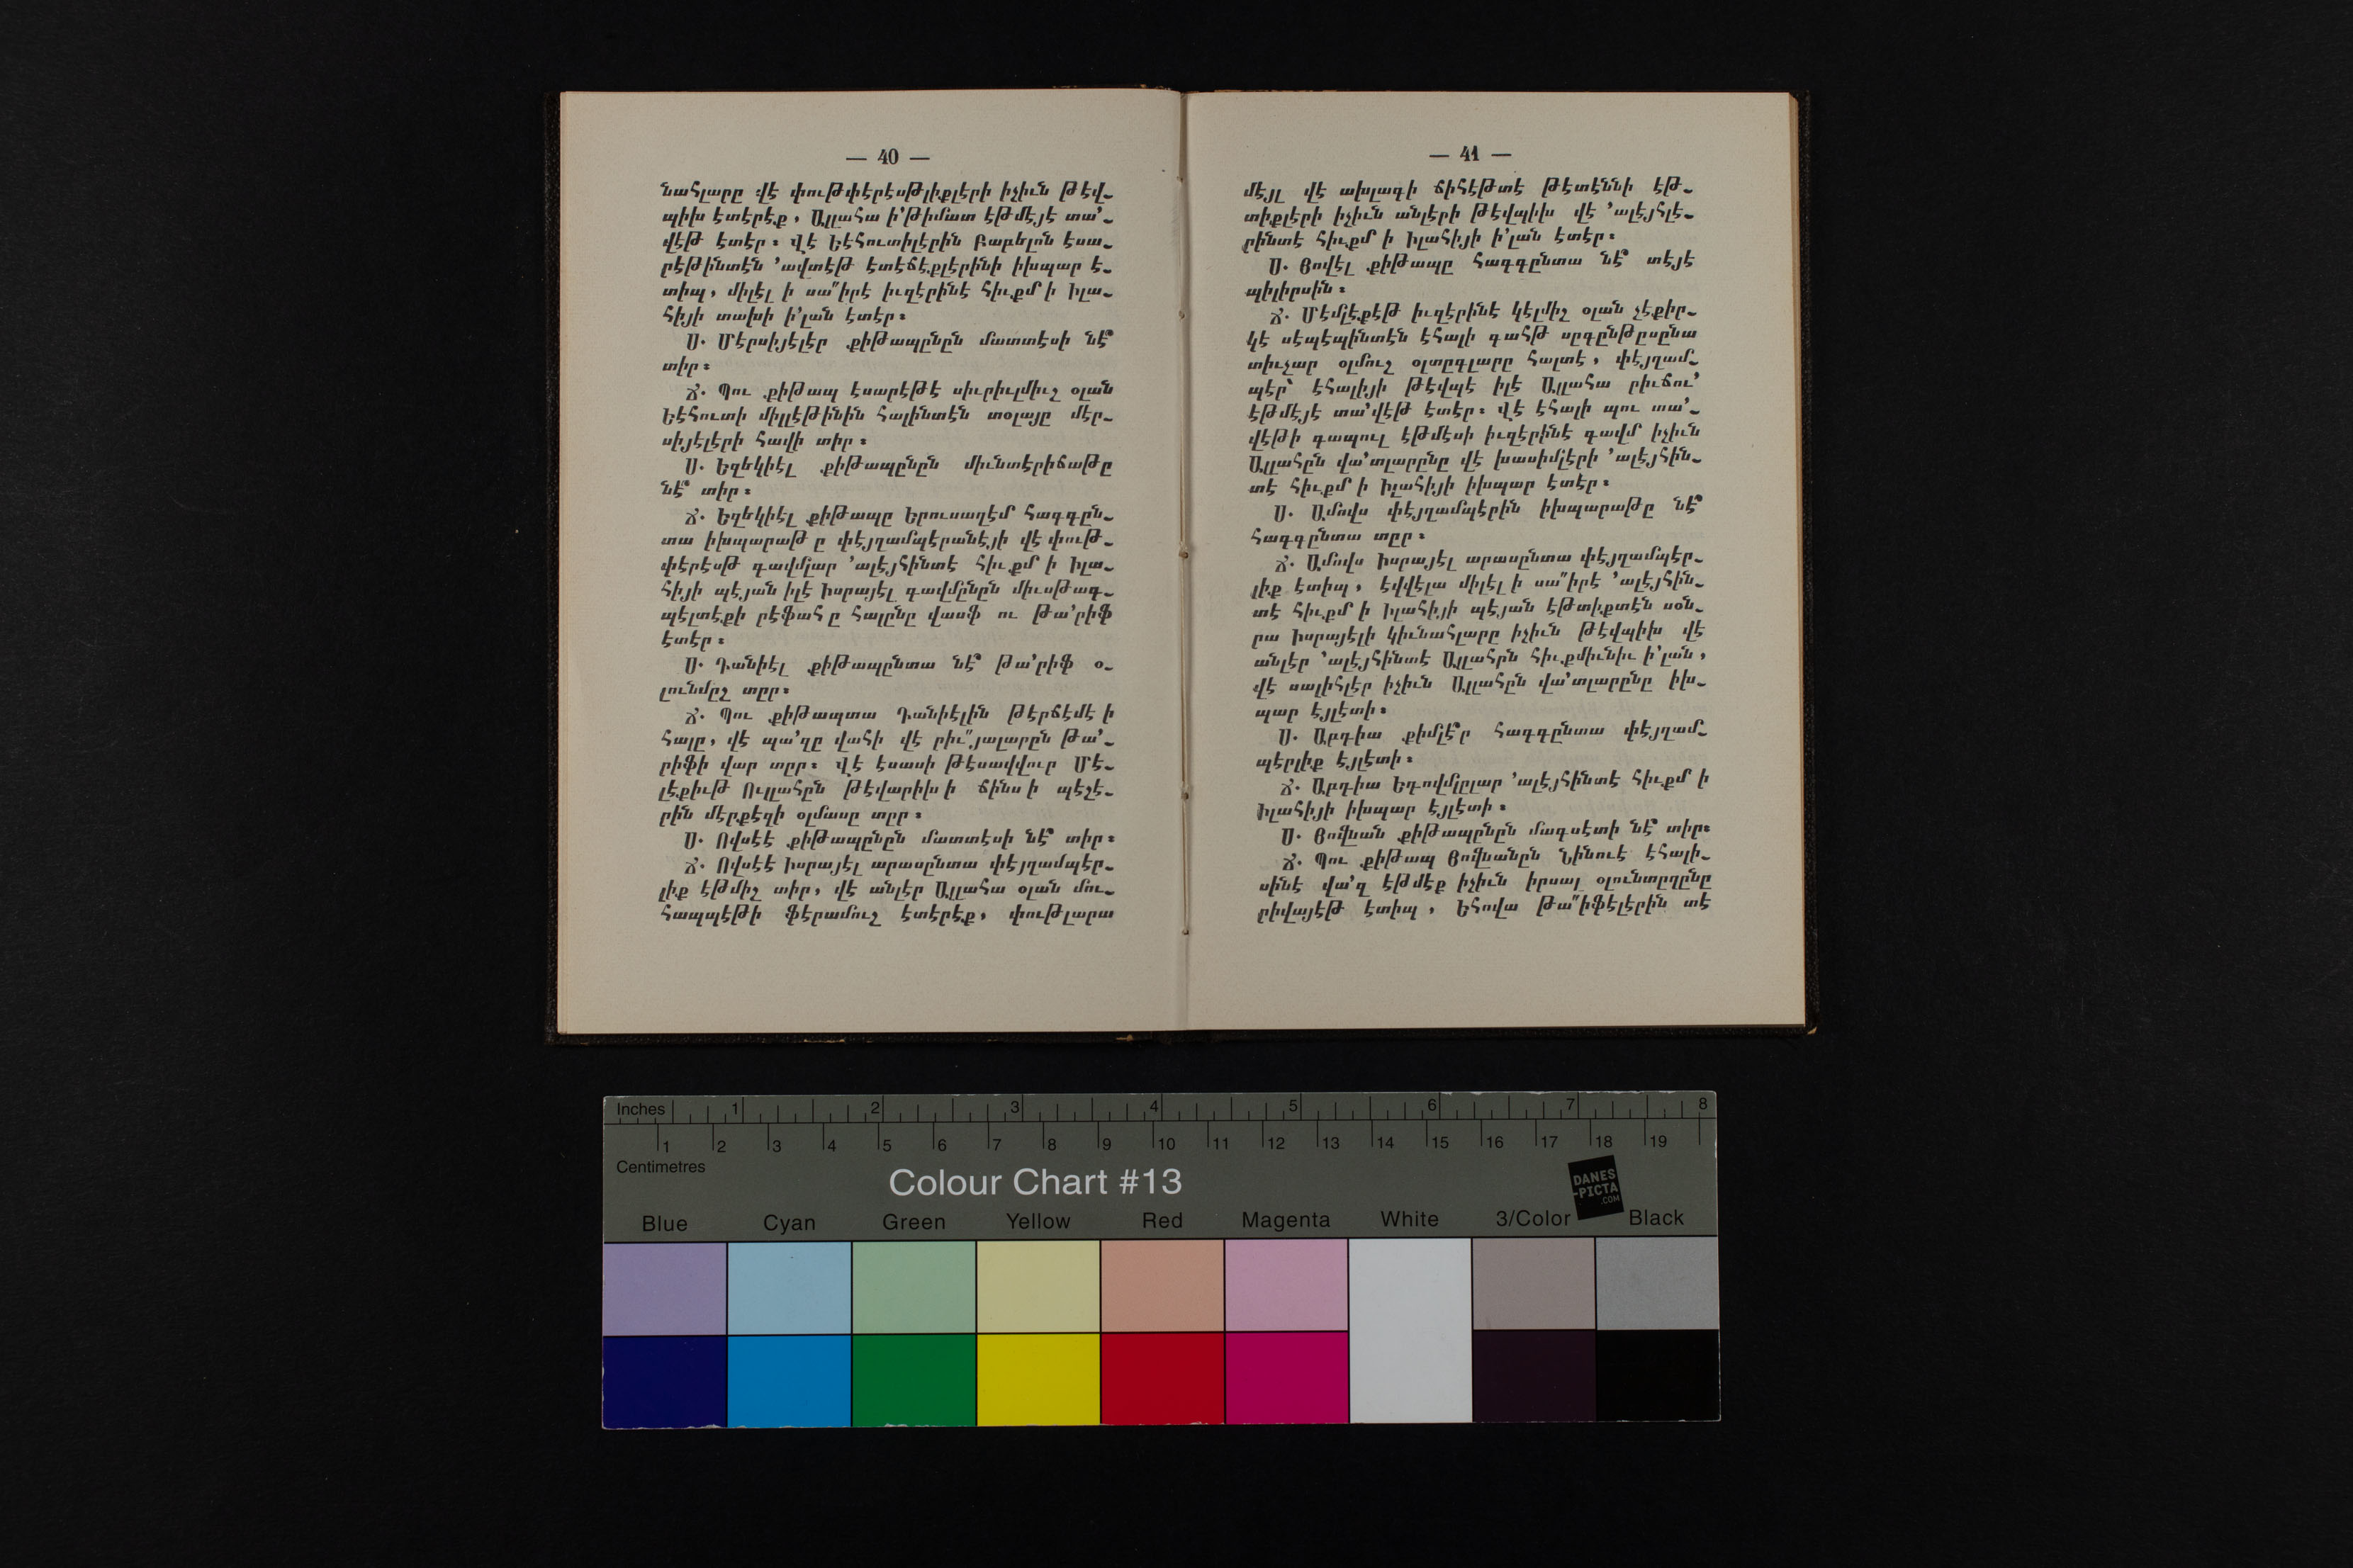 — 40 —
նահլարը վէ փութփէրէսթլիքլերի իչիւն թէվ֊
պիխ էտէրէք, Ալլահա ի՚թիմատ էթմէյէ տա՚֊
վէթ էտէր։ Վէ Եէհուտիլէրին Բաբելոն էսա֊
րէթինտէն ՚ավտէթ էտէճէքլէրինի իխպար է֊
տիպ, միլէլ ի սա՞իրէ իւզէրինէ հիւքմ ի Իլա֊
հիյի տախի ի՚լան էտէր։
Ս. Մէրսիյէլէր քիթապընըն մատտէսի նէ՞
տիր։
Ճ. Պու քիթապ էսարէթէ սիւրիւլմիւշ օլան
Եէհուտի միլլէթինին հալինտէն տօլայը մէր֊
սիյէլէրի հավի տիր։
Ս. Եզեկիէլ քիթապընըն միւնտէրիճաթը
նէ՞ տիր։
Ճ. Եզեկիէլ քիթապը Երուսաղէմ հագգըն֊
տա իխպարաթ ը փէյղամպէրանէյի վէ փութ֊
փէրէսթ գավմլար ՚ալէյհինտէ հիւքմ ի Իլա֊
հիյի պէյան իլէ Իսրայէլ գավմընըն միւսթագ֊
պէլտէքի րէֆահ ը հալընը վասֆ ու թա՚րիֆ
էտէր։
Ս. Դանիէլ քիթապընտա նէ՞ թա՚րիֆ օ֊
լունմըշ տըր։
Ճ. Պու քիթապտա Դանիէլին թէրճէմէ ի
հալը, վէ պա՚զը վահի վէ րիւ՞յալարըն թա՚֊
րիֆի վար տըր։ Վէ էսասի թէսավվուր Մէ֊
լէքիւթ Ուլլահըն թէվարիխ ի ճինս ի պէշէ֊
րին մէրքէզի օլմասը տըր։
Ս. Ովսէէ քիթապընըն մատտէսի նէ՞ տիր։
Ճ. Ովսէէ Իսրայէլ արասընտա փէյղամպէր֊
լիք էթմիշ տիր, վէ անլէր Ալլահա օլան մու֊
հապպէթի ֆէրամուշ էտէրէք, փութլարա
— 41 —
մէյլ վէ ախլագի ճիհէթտէ թէտէննի էթ֊
տիքլէրի իչիւն անլէրի թէվպիխ վէ ՚ալէյհլէ֊
րինտէ հիւքմ ի Իլահիյի ի՚լան էտէր։
Ս. Յովէլ քիթապը հագգընտա նէ՞ տէյէ
պիլիրսին։
Ճ. Մէմլէքէթ իւզէրինէ կէլմիշ օլան չէքիր֊
կէ սէպէպինտէն էհալի գահթ սըգընթըսընա
տիւչար օլմուշ օլտըգլարը հալտէ, փէյղամ֊
պէր՝ էհալիյի թէվպէ իլէ Ալլահա րիւճու՚
էթմէյէ տա՚վէթ էտէր։ Վէ էհալի պու տա՚֊
վէթի գապուլ էթմէսի իւզէրինէ գավմ իչիւն
Ալլահըն վա՚տլարընը վէ խասիմլէրի ՚ալէյհին֊
տէ հիւքմ ի Իլահիյի իխպար էտէր։
Ս. Ամովս փէյղամպէրին իխպարաթը նէ՞
հագգընտա տըր։
Ճ. Ամովս Իսրայէլ արասընտա փէյղամպէր֊
լիք էտիպ, էվվէլա միլէլ ի սա՞իրէ ՚ալէյհին֊
տէ հիւքմ ի Իլահիյի պէյան էթտիքտէն սօն֊
րա Իսրայէլի կիւնահլարը իչիւն թէվպիխ վէ
անլէր ՚ալէյհինտէ Ալլահըն հիւքմիւնիւ ի՚լան,
վէ սալիհլէր իչիւն Ալլահըն վա՚տլարընը իխ֊
պար էյլէտի։
Ս. Աբդիա քիմլէ՞ր հագգընտա փէյղամ֊
պէրլիք էյլէտի։
Ճ. Աբդիա Եդովմլըլար ՚ալէյհինտէ հիւքմ ի
Իլահիյի իխպար էյլէտի։
Ս. Յովնան քիթապընըն մագսէտի նէ՞ տիր։
Ճ. Պու քիթապ Յովնանըն Նինուէ էհալի֊
սինէ վա՚զ էթմէք իչիւն իրսալ օլունտըղընը
րիվայէթ էտիպ, Եհովա թա՞իֆէլէրին տէ
Inches 1 2 3 4 5 6 7 8
1 2 3 4 5 6 7 8 9 10 11 12 13 14 15 16 17 18 19
Centimetres
Colour Chart #13
DANES
-PICTA
.COM
Blue Cyan Green Yellow Red Magenta White 3/Color Black